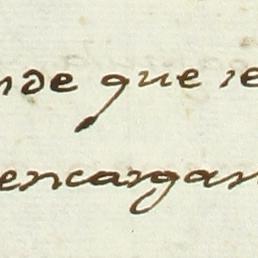 nde que se
encargan